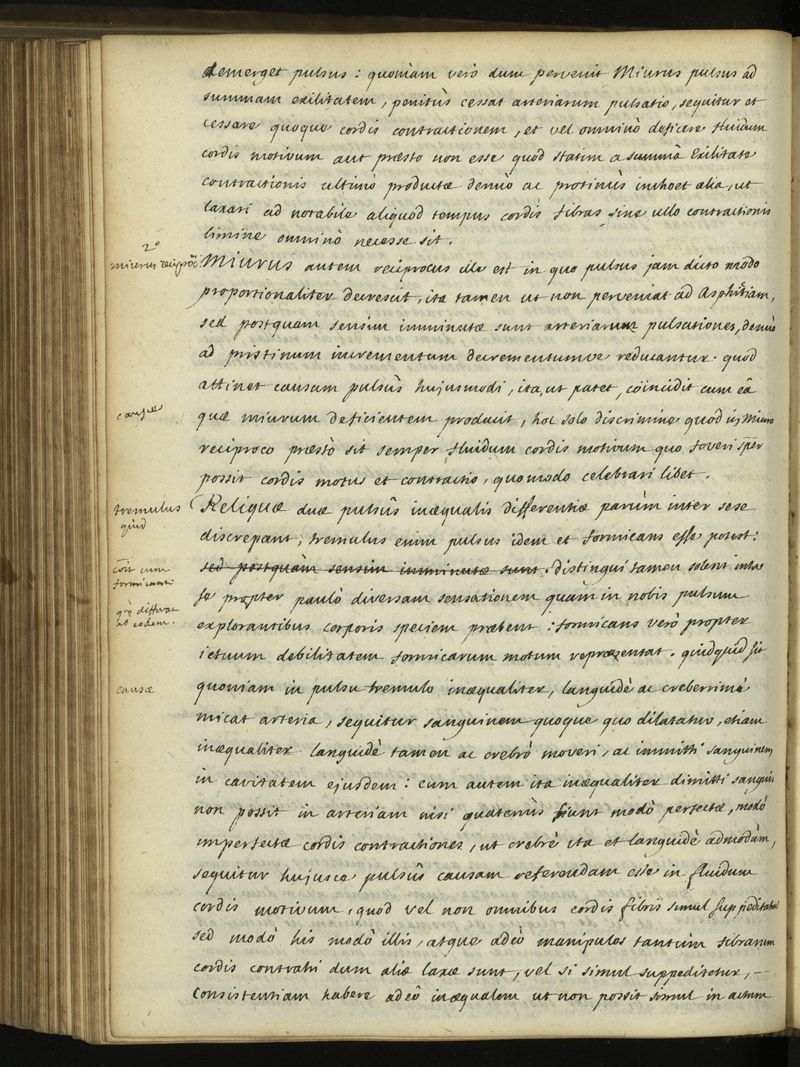 demerget pulsus : quoniam verò dum pervenit Miurus pulsus ad
summam exilitatem, penitùs cessat arteriarum pulsatio, sequitur et
cessare quoque cordis contractionem, et vel omninò deficere fluidum
cordis motivum aut præsto non esse quod statim a summâ Exilitate
contractionis ultimò productæ denùo ac protinùs inchoet alia, ut
laxari ad notabile aliquod tempus cordis fibras sine ullo contractionis
limine omninò necesse sit.
2º
miurus reciprõc:
Miurus autem reciprocus ille est in quo pulsus jam dicto modo
proportionaliter decrescit, ita tamen ut non perveniat ad Asphitiam,
sed postquam sensim imminutæ sunt arteriarum pulsationes, denùo
ad pristinum incrementum decrementumve reducantur. quod
attinet causam pulsûs hujusmodi, ita, ut patet, coïncidit cum eâ
causæ
quæ miurum deficientem producit, hoc solo discrimine quod in Miuro
reciproco præstò sit semper fluidum cordis motivum quo foveri sper
possit cordis motus et contractio, quomodo celebrari libet.
tremulus
quid
Reliquæ duæ pulsûs inæqualis differentiæ parùm inter sese
discrepant, tremulus enim pulsus idem et formicans esse potest:
coït cum
formicanti
sed postquàm sensim imminutæ sunt. distingui tamen solent inter
se propter paulò diversam sensationem quam in nobis pulsum
qi differat
ab eodem.
explorantibus corporis speciem præbent : formicans verò propter
ictuum debilitatem formicarum motum repræsentat. quidquid sit
causæ
quoniam in pulsu tremulo inæqualiter, languidè ac creberrimè
micat arteria, sequitur sanguinem quoque quo dilatatur, etiam
inæqualiter languidè tamen ac crebrò moveri, ac immitti sanguinem
in cavitatem ejusdem : cum autem ita inæqualiter dimitti sanguis
non possit in arteriam nisi quatenùs fiunt modò perfectæ, modò
imperfectæ cordis contractiones, ut crebrè ita et languidè admodùm,
sequitur hujusce pulsûs causam referendam esse in fluidum
cordis motivum, quod vel non omnibus cordis fibris simul suppeditatur
sed modò his modò illis, atque adeò manipulos tantùm fibrarum
cordis contrahi dum aliæ laxæ sunt, vel si simul suppeditetur, —
Consistentiam habere adeò inæqualem ut non possit simul in actum